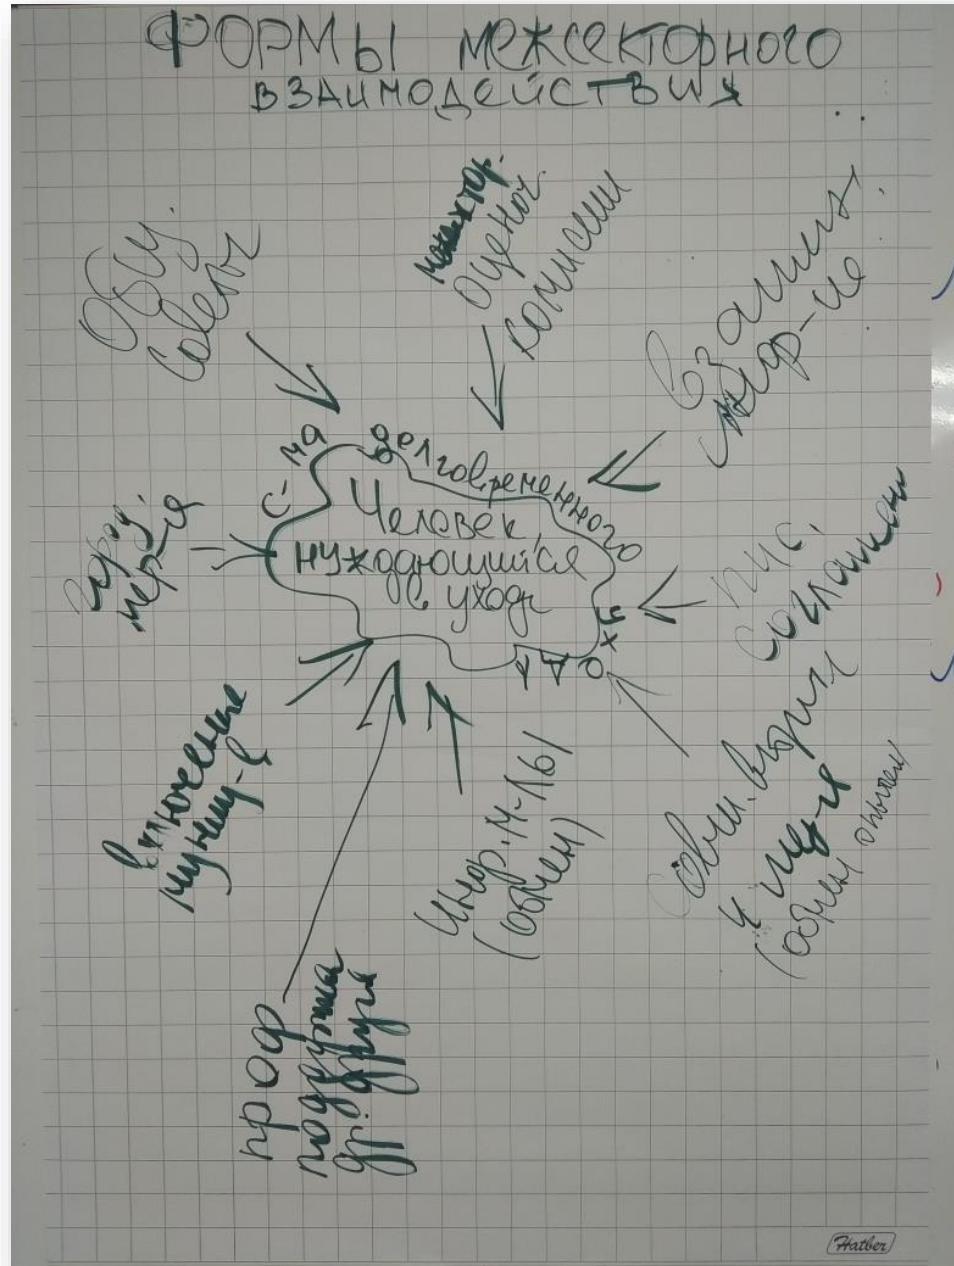 ФОРМЫ межсекторного
взаимодействия
Общ.
советы
оценоч.
комиссии
Взаимн.
инфор-ие
с-ма долговременного ухода
Человек,
нуждающийся
в уходе
город.
мер-ия
соглашени
включение
муницип-в
Инфор. м-лы
(обмен)
Совм.
и
(обмен опытом)
проф
поддержка
др. друга
Hatber